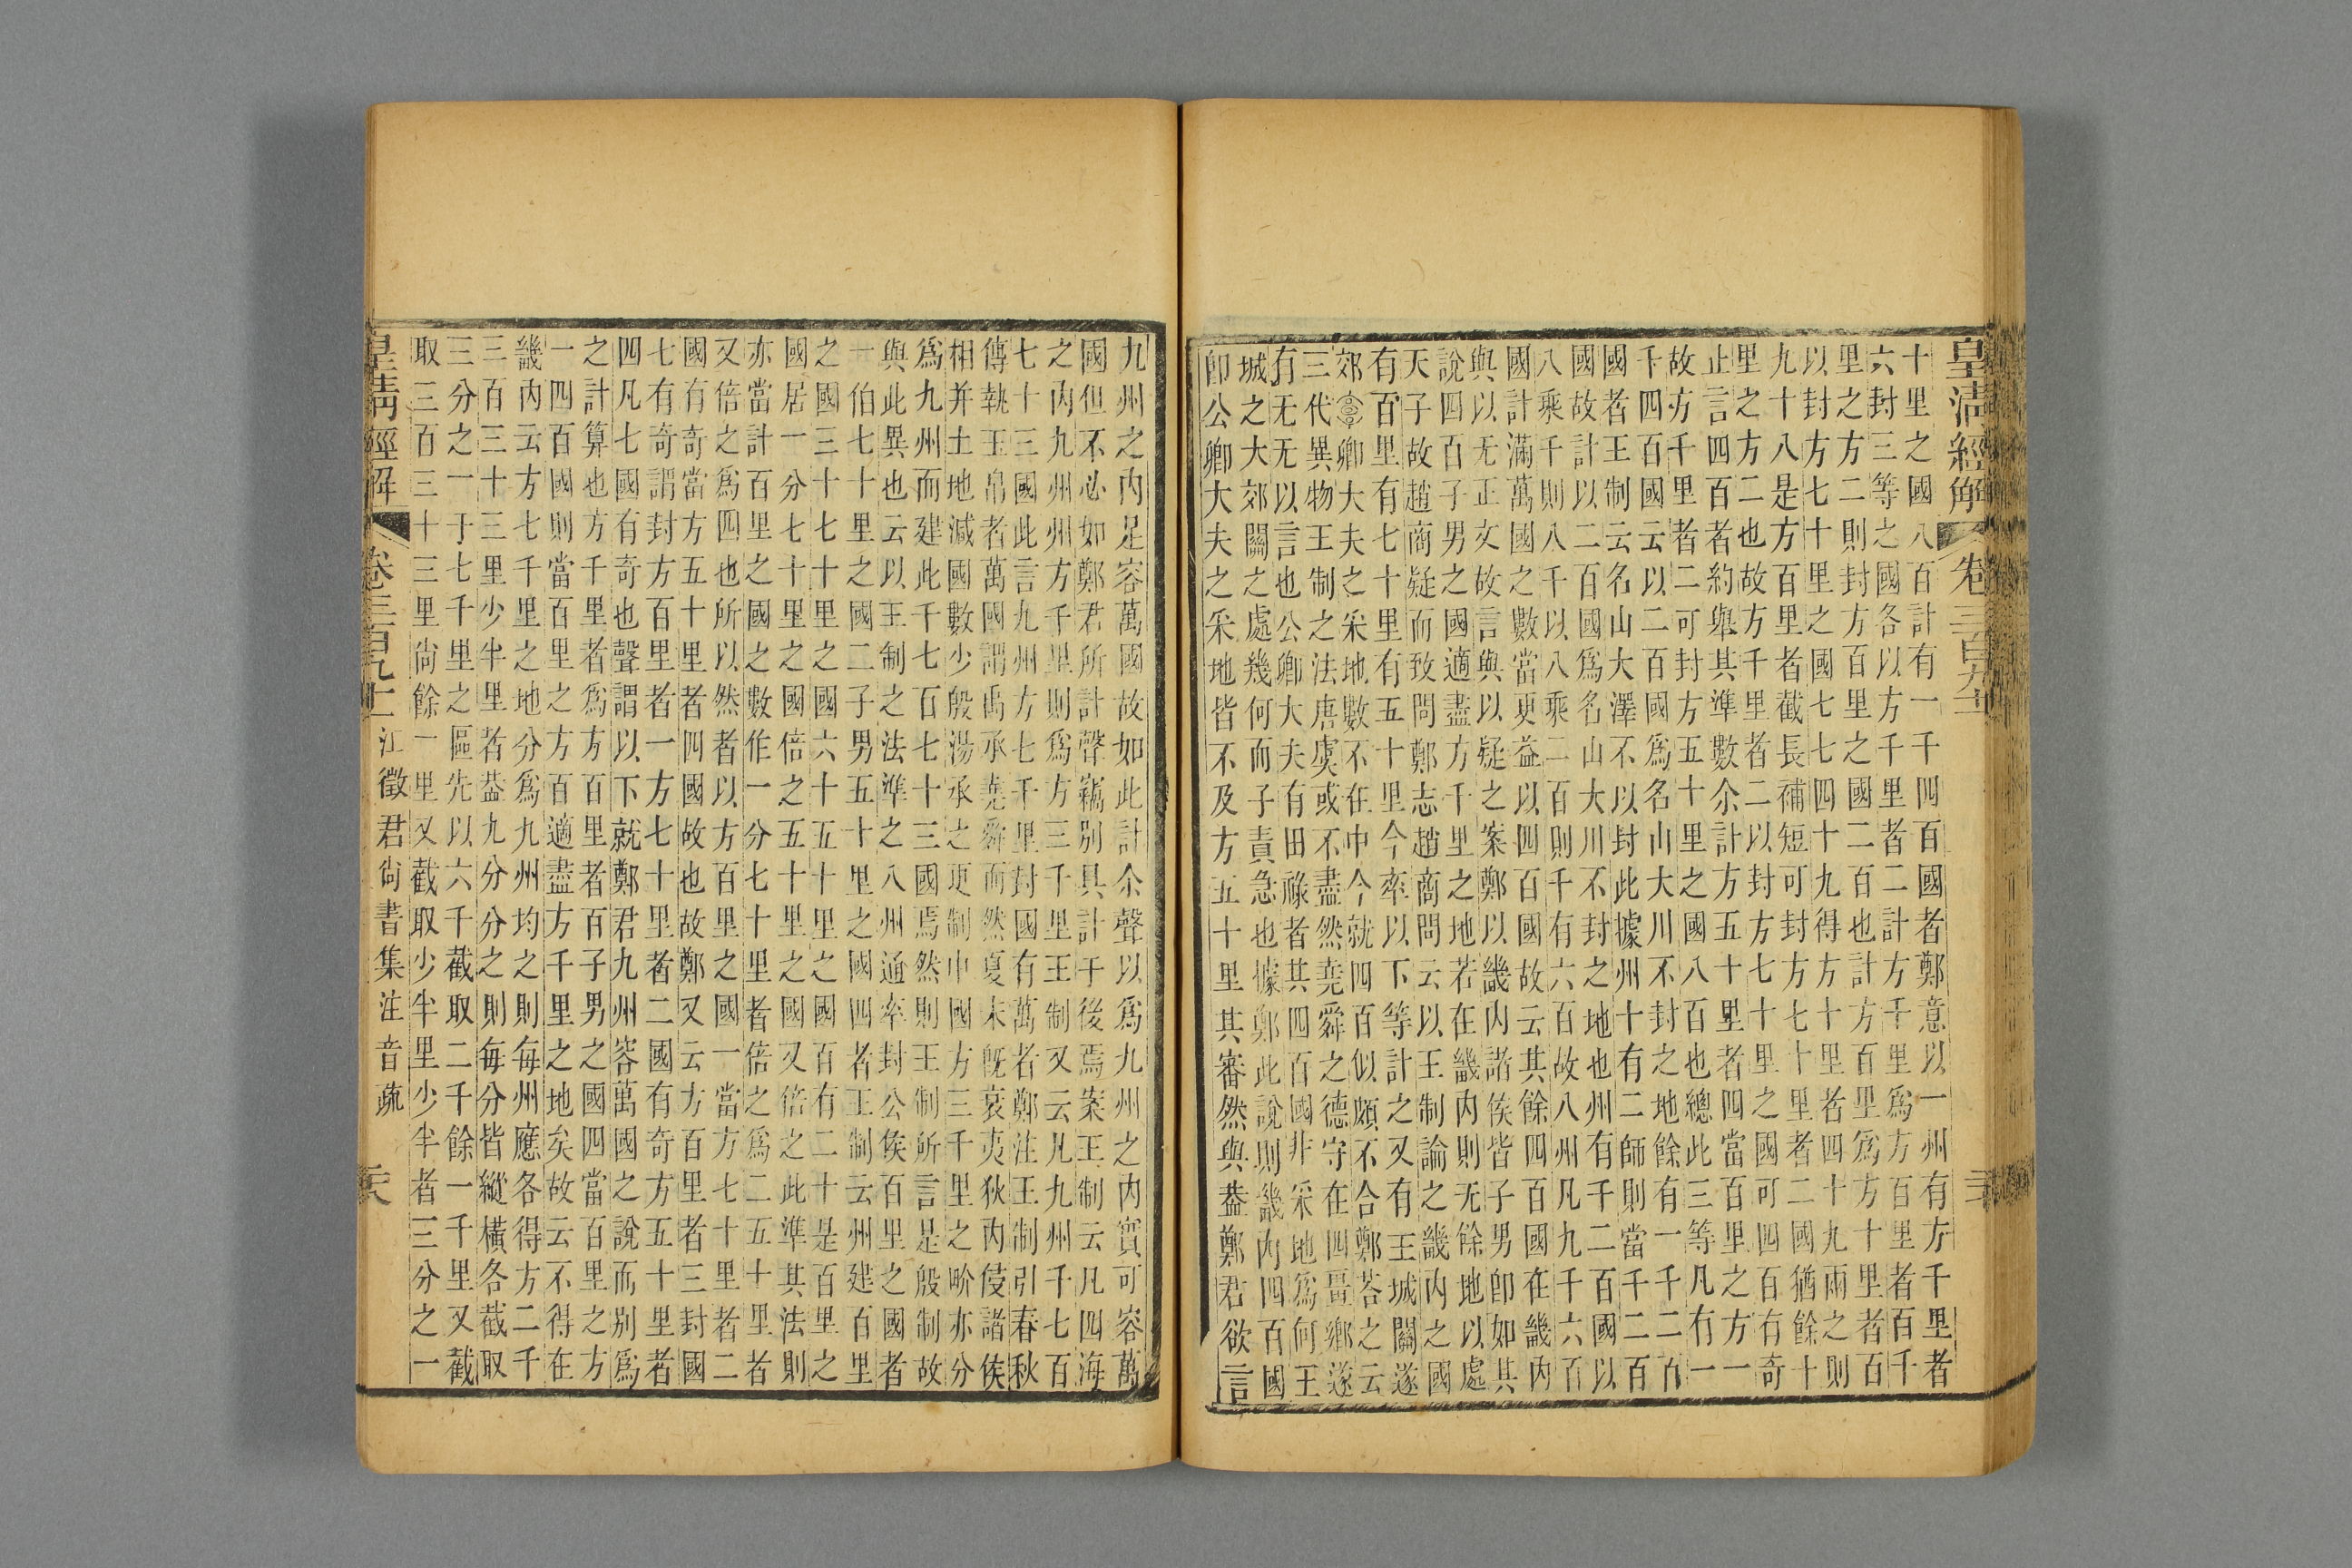 皇清經解 卷三百九十二
十里之國八百計有一千四百國者鄭意以一州有方千里者
六封三等之國各以方千里者二計方千里爲方百里者百千
里之方二則封方百里之國二百也計方百里爲方十里者百
以封方七十里之國七七四十九得方十里者四十九兩之則
九十八是方百里者截長補短可封方七十里者二國猶餘十
里之方二也故方千里者二以封方七十里之國可四百有奇
止言四百者約舉其準數尒計方五十里者四當百里之方一
故方千里者二可封方五十里之國八百也總此三等凡有一
千四百國云以二百國爲名山大川不封之地餘有一千二百
國者王制云名山大澤不以封此據州十有二師則當千二百
國故計以二百國爲名山大川不封之地也州有千二百國以
八乘千則八千以八乘二百則千有六百故八州凡九千六百
國計滿萬國之數當更益以四百國故云其餘四百國在畿內
與以无正文故言與以疑之案鄭以畿內諸侯皆子男卽如其
說四百子男之國適盡方千里之地若在畿內則无餘地以處
天子故趙商疑而致問鄭志趙商問云以王制論之畿內之國
有百里有七十里有五十里今率以下等計之又有王城關遂
郊卿大夫之采地數不在中今就四百似頗不合鄭荅之云
三代異物王制之法唐虞或不盡然堯舜之德守在四畺鄉遂
有无无以言也公卿大夫有田祿者其四百國非采地爲何王
城之大郊關之處幾何而子責急也據鄭此說則畿內四百國
卽公卿大夫之采地皆不及方五十里其審然與葢鄭君欲言
九州之內足容萬國故如此計尒聲以爲九州之內實可容萬
國但不必如鄭君所計聲竊別具計于後焉案王制云凡四海
之內九州州方千里則爲方三千里王制又云凡九州千七百
七十三國此言九州方七千里封國有萬者鄭注王制引春秋
傳執玉帛者萬國謂禹承堯舜而然夏末旣衰夷狄內侵諸侯
相并土地減國數少殷湯承之更制中國方三千里之畍亦分
爲九州而建此千七百七十三國焉然則王制所言是殷制故
與此異也云以王制之法準之八州通率封公侯百里之國者
一伯七十里之國二子男五十里之國四者王制云州建百里
之國三十七十里之國六十五十里之國百有二十是百里之
國居一分七十里之國倍之五十里之國又倍之此準其法則
亦當計百里之國之數作一分七十里者倍之爲二五十里者
又倍之爲四也所以然者以方百里之國一當方七十里者二
國有奇當方五十里者四國故也故鄭又云方百里者三封國
七有奇謂封方百里者一方七十里者二國有奇方五十里者
四凡七國有奇也聲謂以下就鄭君九州容萬國之說而別爲
之計算也方千里者爲方百里者百子男之國四當百里之方
一四百國則當百里之方百適盡方千里之地矣故云不得在
畿內云方七千里之地分爲九州均之則每州應各得方二千
三百三十三里少半里者葢九分分之則每分皆縱橫各截取
三分之一于七千里之區先以六千截取二千餘一千里又截
取三百三十三里尙餘一里又截取少半里少半者三分之一
皇清經解 卷三百九十二 江徵君尙書集注音疏